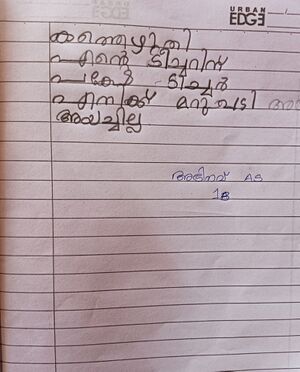 URBAN
EDGE
കത്തെഴുതി
എന്റെ ടീച്ചറിന്
പക്ഷേ ടീച്ചർ
എനിക്ക് മറുപടി
അയച്ചില്ല
അഭിനവ് AS
1B